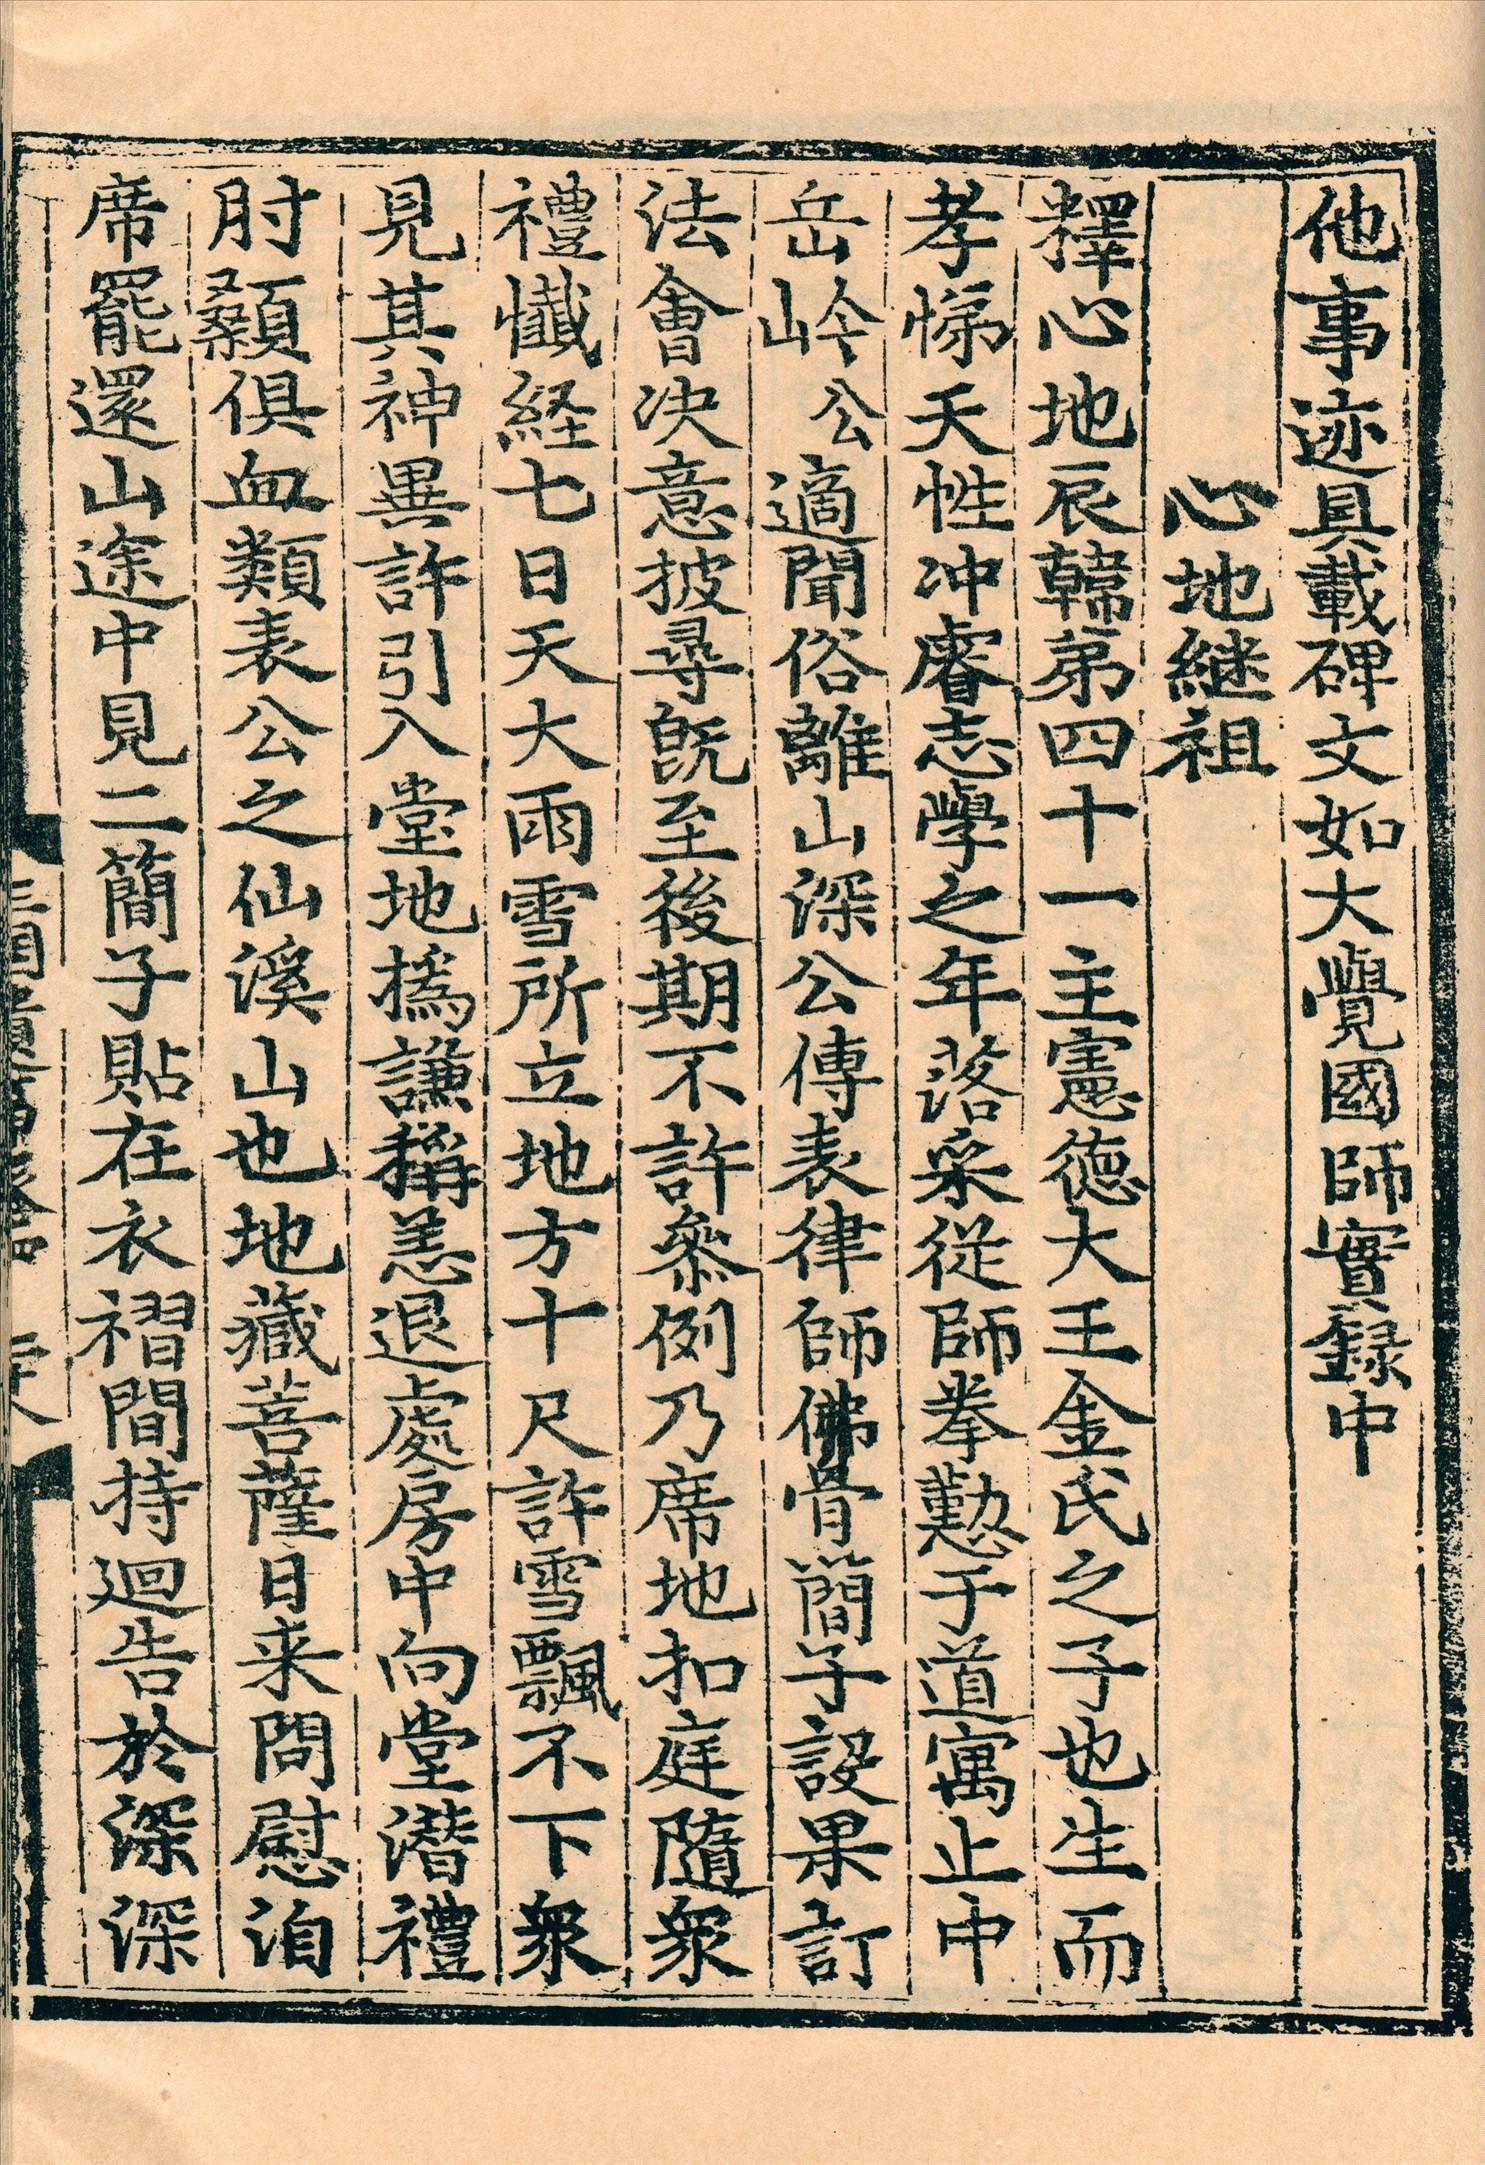 他事迹具載碑文如大覺國師實録中
心地継祖
釋心地辰韓第四十一主憲德大王金氏之子也生而
孝悌天性冲睿志學之年落采從師拳懃于道寓止中
岳岭公適聞俗離山深公傳表律師佛骨簡子設果訂
法會决意披尋旣至後期不許叅例乃席地扣庭隨衆
禮懺経七日天大雨雪所立地方十尺許雪飄不下衆
見其神異許引入堂地撝謙稱恙退處房中向堂潜禮
肘顙俱血類表公之仙溪山也地藏菩薩日来問慰洎
席罷還山途中見二簡子貼在衣褶間持迴告於深深